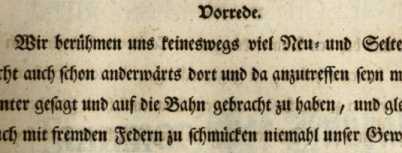 Vorrede.
Wir berühmen uns keineswegs viel Neu- und Selte
cht auch schon anderwärts dort und da anzutreffen seyn m
nter gesagt und auf die Bahn gebracht zu haben, und gle
uch mit fremden Federn zu schmücken niemahl unser Gew